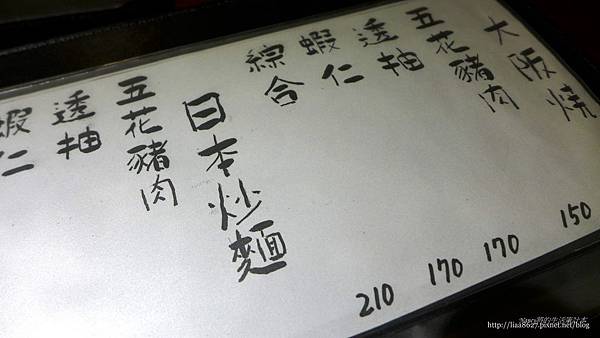 大阪燒
五花豬肉 150
透抽 170
蝦仁 170
綜合 210
日本炒麵
五花豬肉
透抽
蝦仁
http://liaa8627.pixnet.net/blog